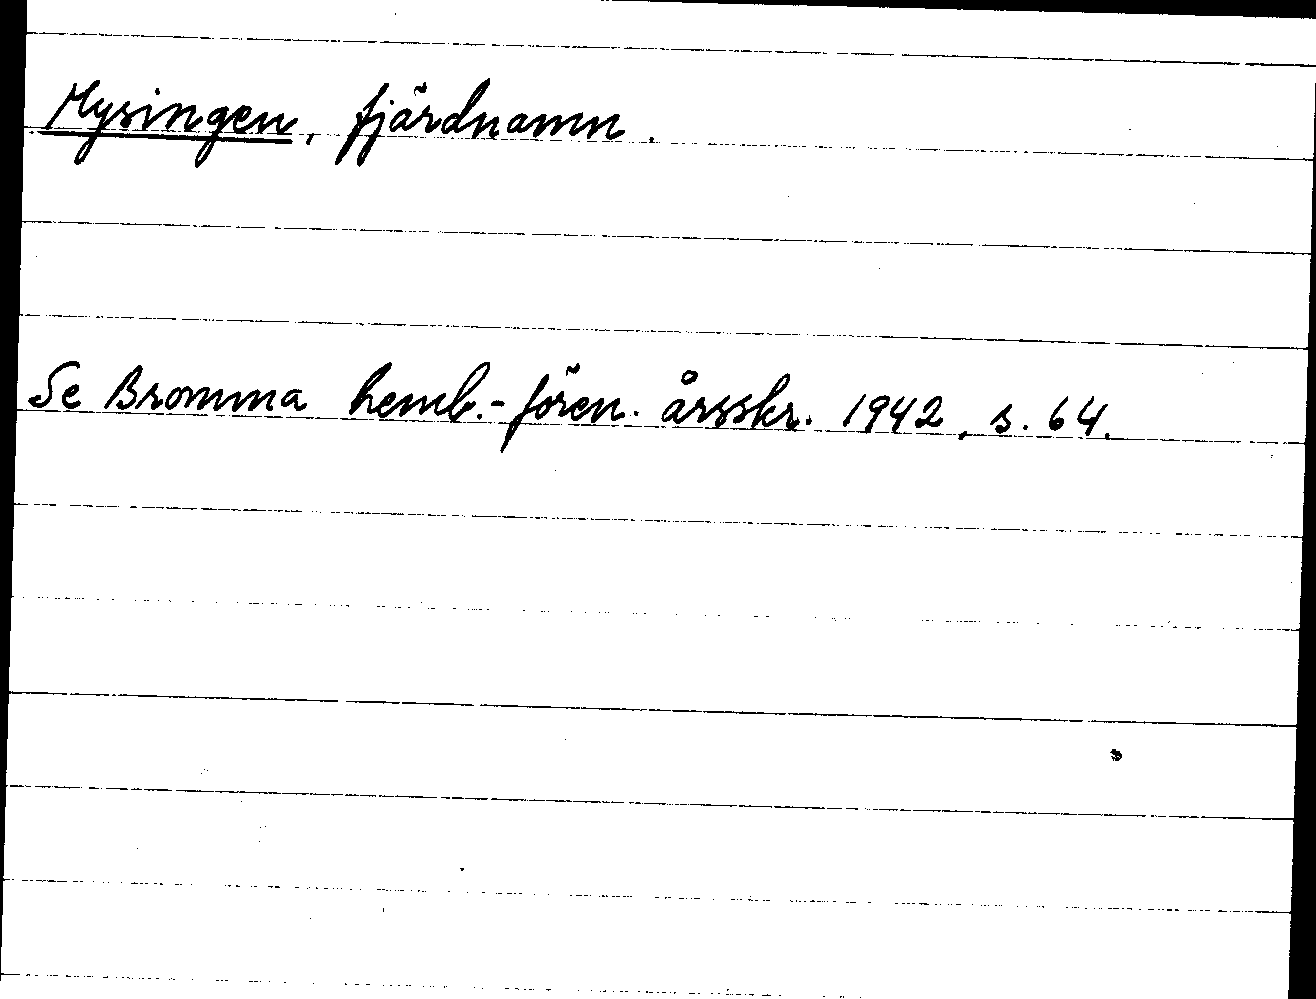 Mysingen, fjärdnamn.
Se Bromma hemb.-fören. årsskr. 1942, s. 64.